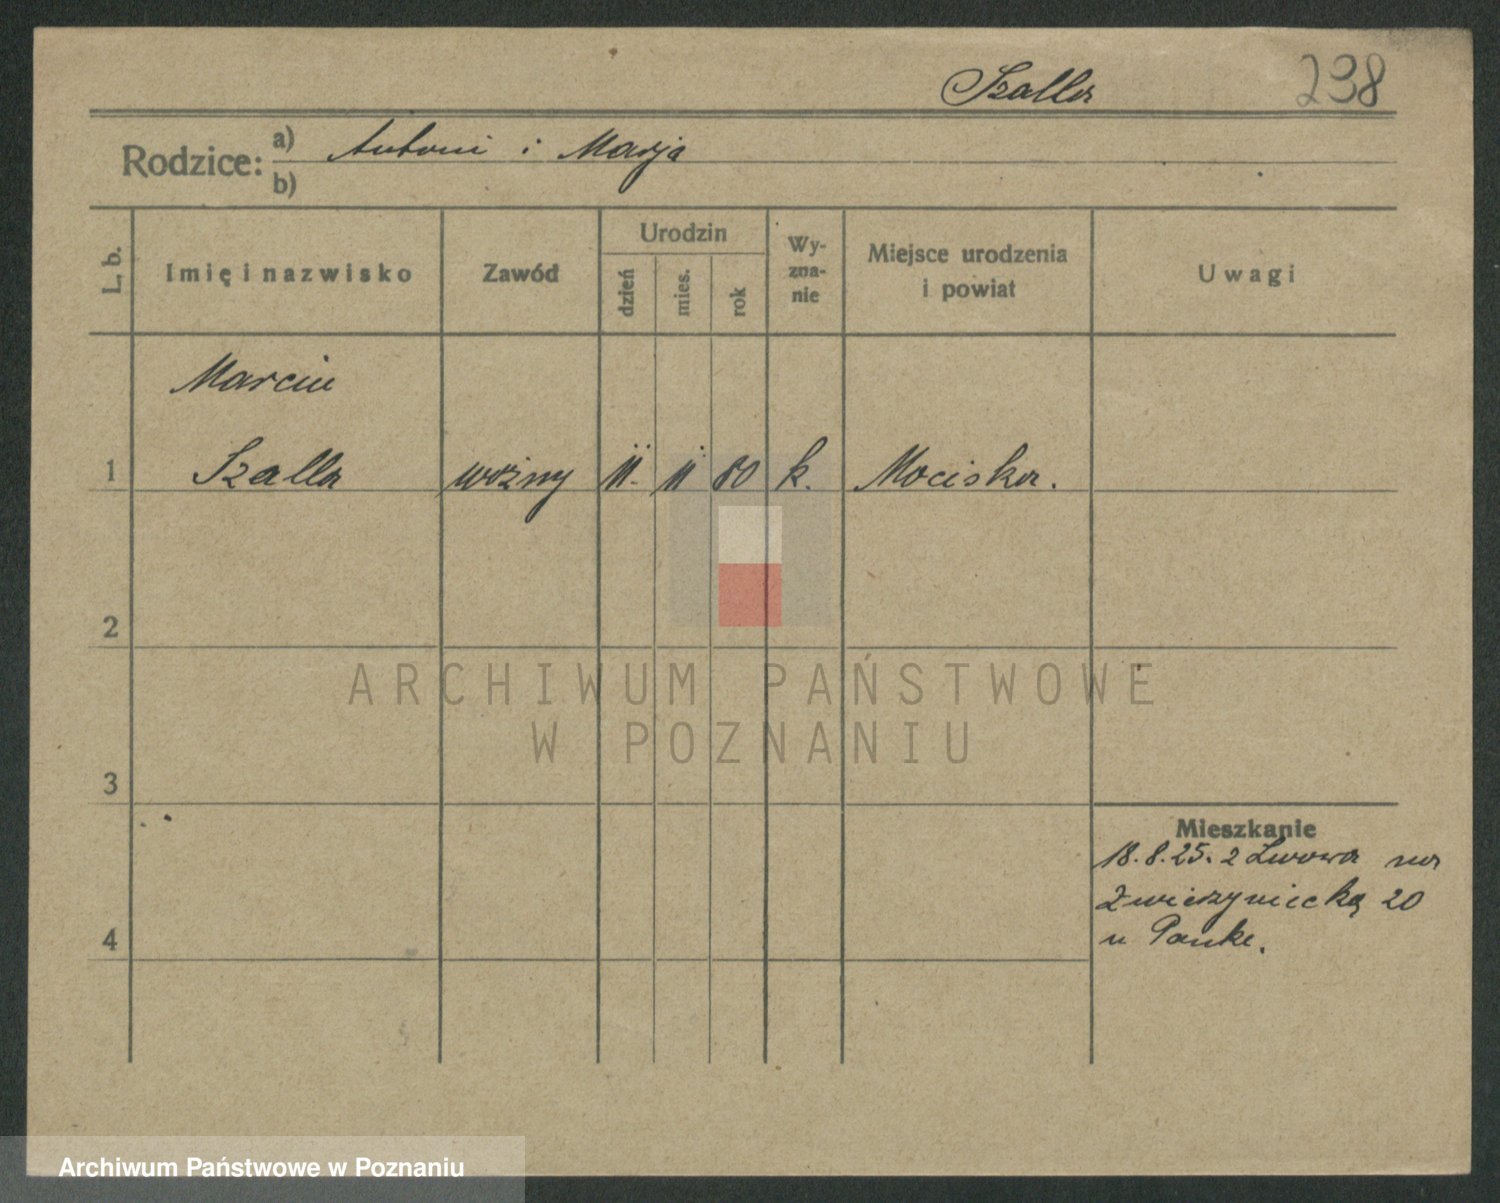 Szalla 238
Rodzice: a) Antoni i Marja
b)
L. b. Imię i nazwisko Zawód Urodzin dzień mies. rok Wyznanie Miejsce urodzenia i powiat Uwagi
Marcin
1 Szalla woźny 11. 11 80 k. Mociska.
2
ARCHIWUM PAŃSTWOWE
W POZNANIU
3
Mieszkanie
18.8.25. z Lwowa na
Zwierzyniecką 20
4 u Panke.
Archiwum Państwowe w Poznaniu